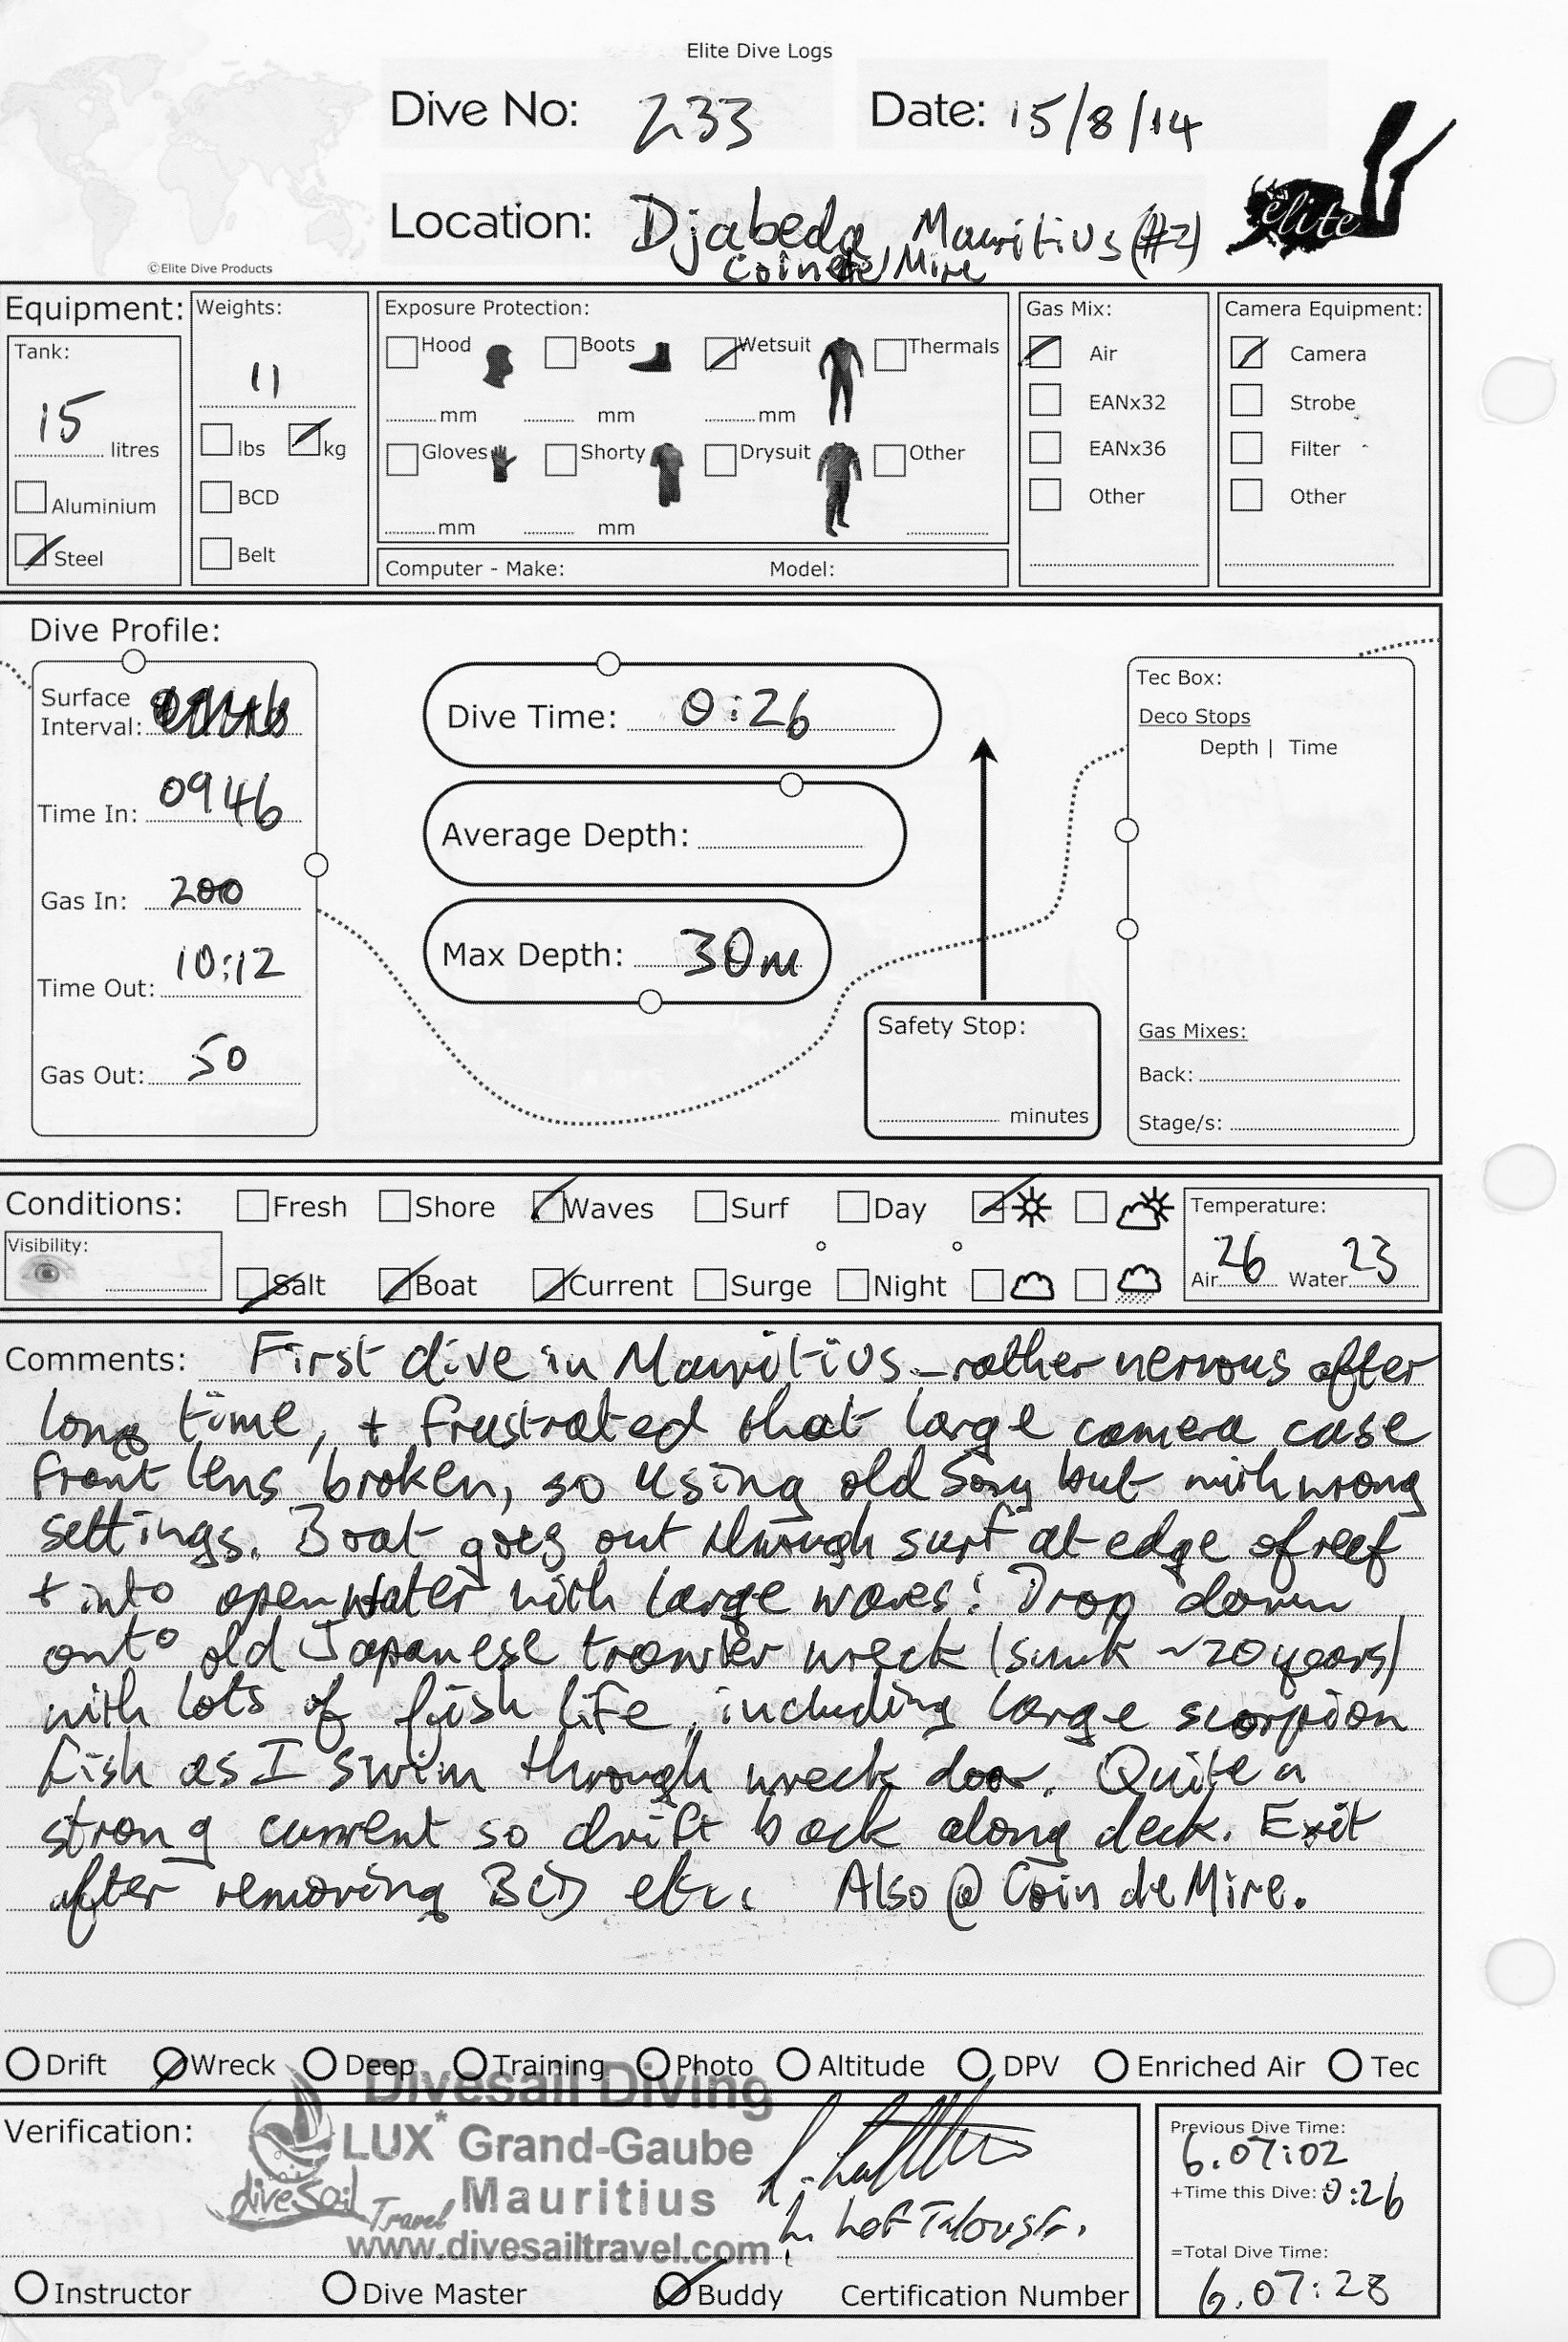 Elite Dive Logs
Dive No: 233 Date: 15/8/14
Location: Djabeda, Mauritius (#2)
Coin de Mire
elite
©Elite Dive Products
Equipment:
Tank:
15 litres
Aluminium
Steel
Weights:
11
lbs kg
BCD
Belt
Exposure Protection:
Hood Boots Wetsuit Thermals
mm mm mm
Gloves Shorty Drysuit Other
mm mm
Computer - Make: Model:
Gas Mix:
Air
EANx32
EANx36
Other
Camera Equipment:
Camera
Strobe
Filter
Other
Dive Profile:
Surface
Interval:
Time In: 0946
Gas In: 200
Time Out: 10:12
Gas Out: 50
Dive Time: 0:26
Average Depth:
Max Depth: 30m
Safety Stop:
minutes
Tec Box:
Deco Stops
Depth | Time
Gas Mixes:
Back:
Stage/s:
Conditions: Fresh Shore Waves Surf Day
Visibility:
Salt Boat Current Surge Night
Temperature:
Air 26 Water 23
Comments: First dive in Mauritius - rather nervous after
long time, + frustrated that large camera case
front lens broken, so using old Sony but with wrong
settings. Boat goes out through surf at edge of reef
+ into open water with large waves! Drop down
onto old Japanese trawler wreck (sunk ~20 years)
with lots of fish life, including large scorpion
fish as I swim through wreck door. Quite a
strong current so drift back along deck. Exit
after removing BCD etc. Also @ Coin de Mire.
Drift Wreck Deep Training Photo Altitude DPV Enriched Air Tec
Verification:
Divesail Diving
LUX* Grand-Gaube
Mauritius
www.divesailtravel.com
diveSail
Travel
Instructor Dive Master Buddy Certification Number
Previous Dive Time:
6.07:02
+Time this Dive: 0:26
=Total Dive Time:
6.07:28